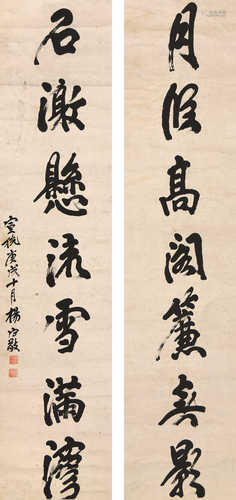 月浸高阁帘無影
石激懸流雪滿灣
宣統庚戌十月楊守敬